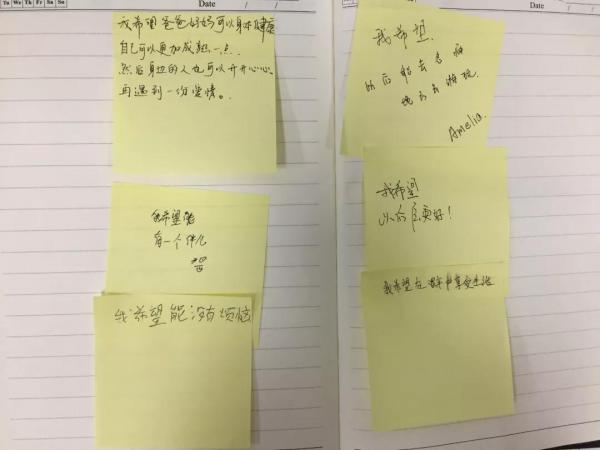 Tu We Th Fr Sa Su
Date
我希望爸爸妈妈可以身体健康
自己可以更加成熟一点.
然后身边的人也可以开开心心
再遇到一份爱情。
我希望能
有一个伴儿
我希望能没有烦恼
Mo Tu We Th Fr Sa Su
Date
我希望.
以后能去
玩.
Amelia.
我希望
以后更好!
我希望在
享受生活